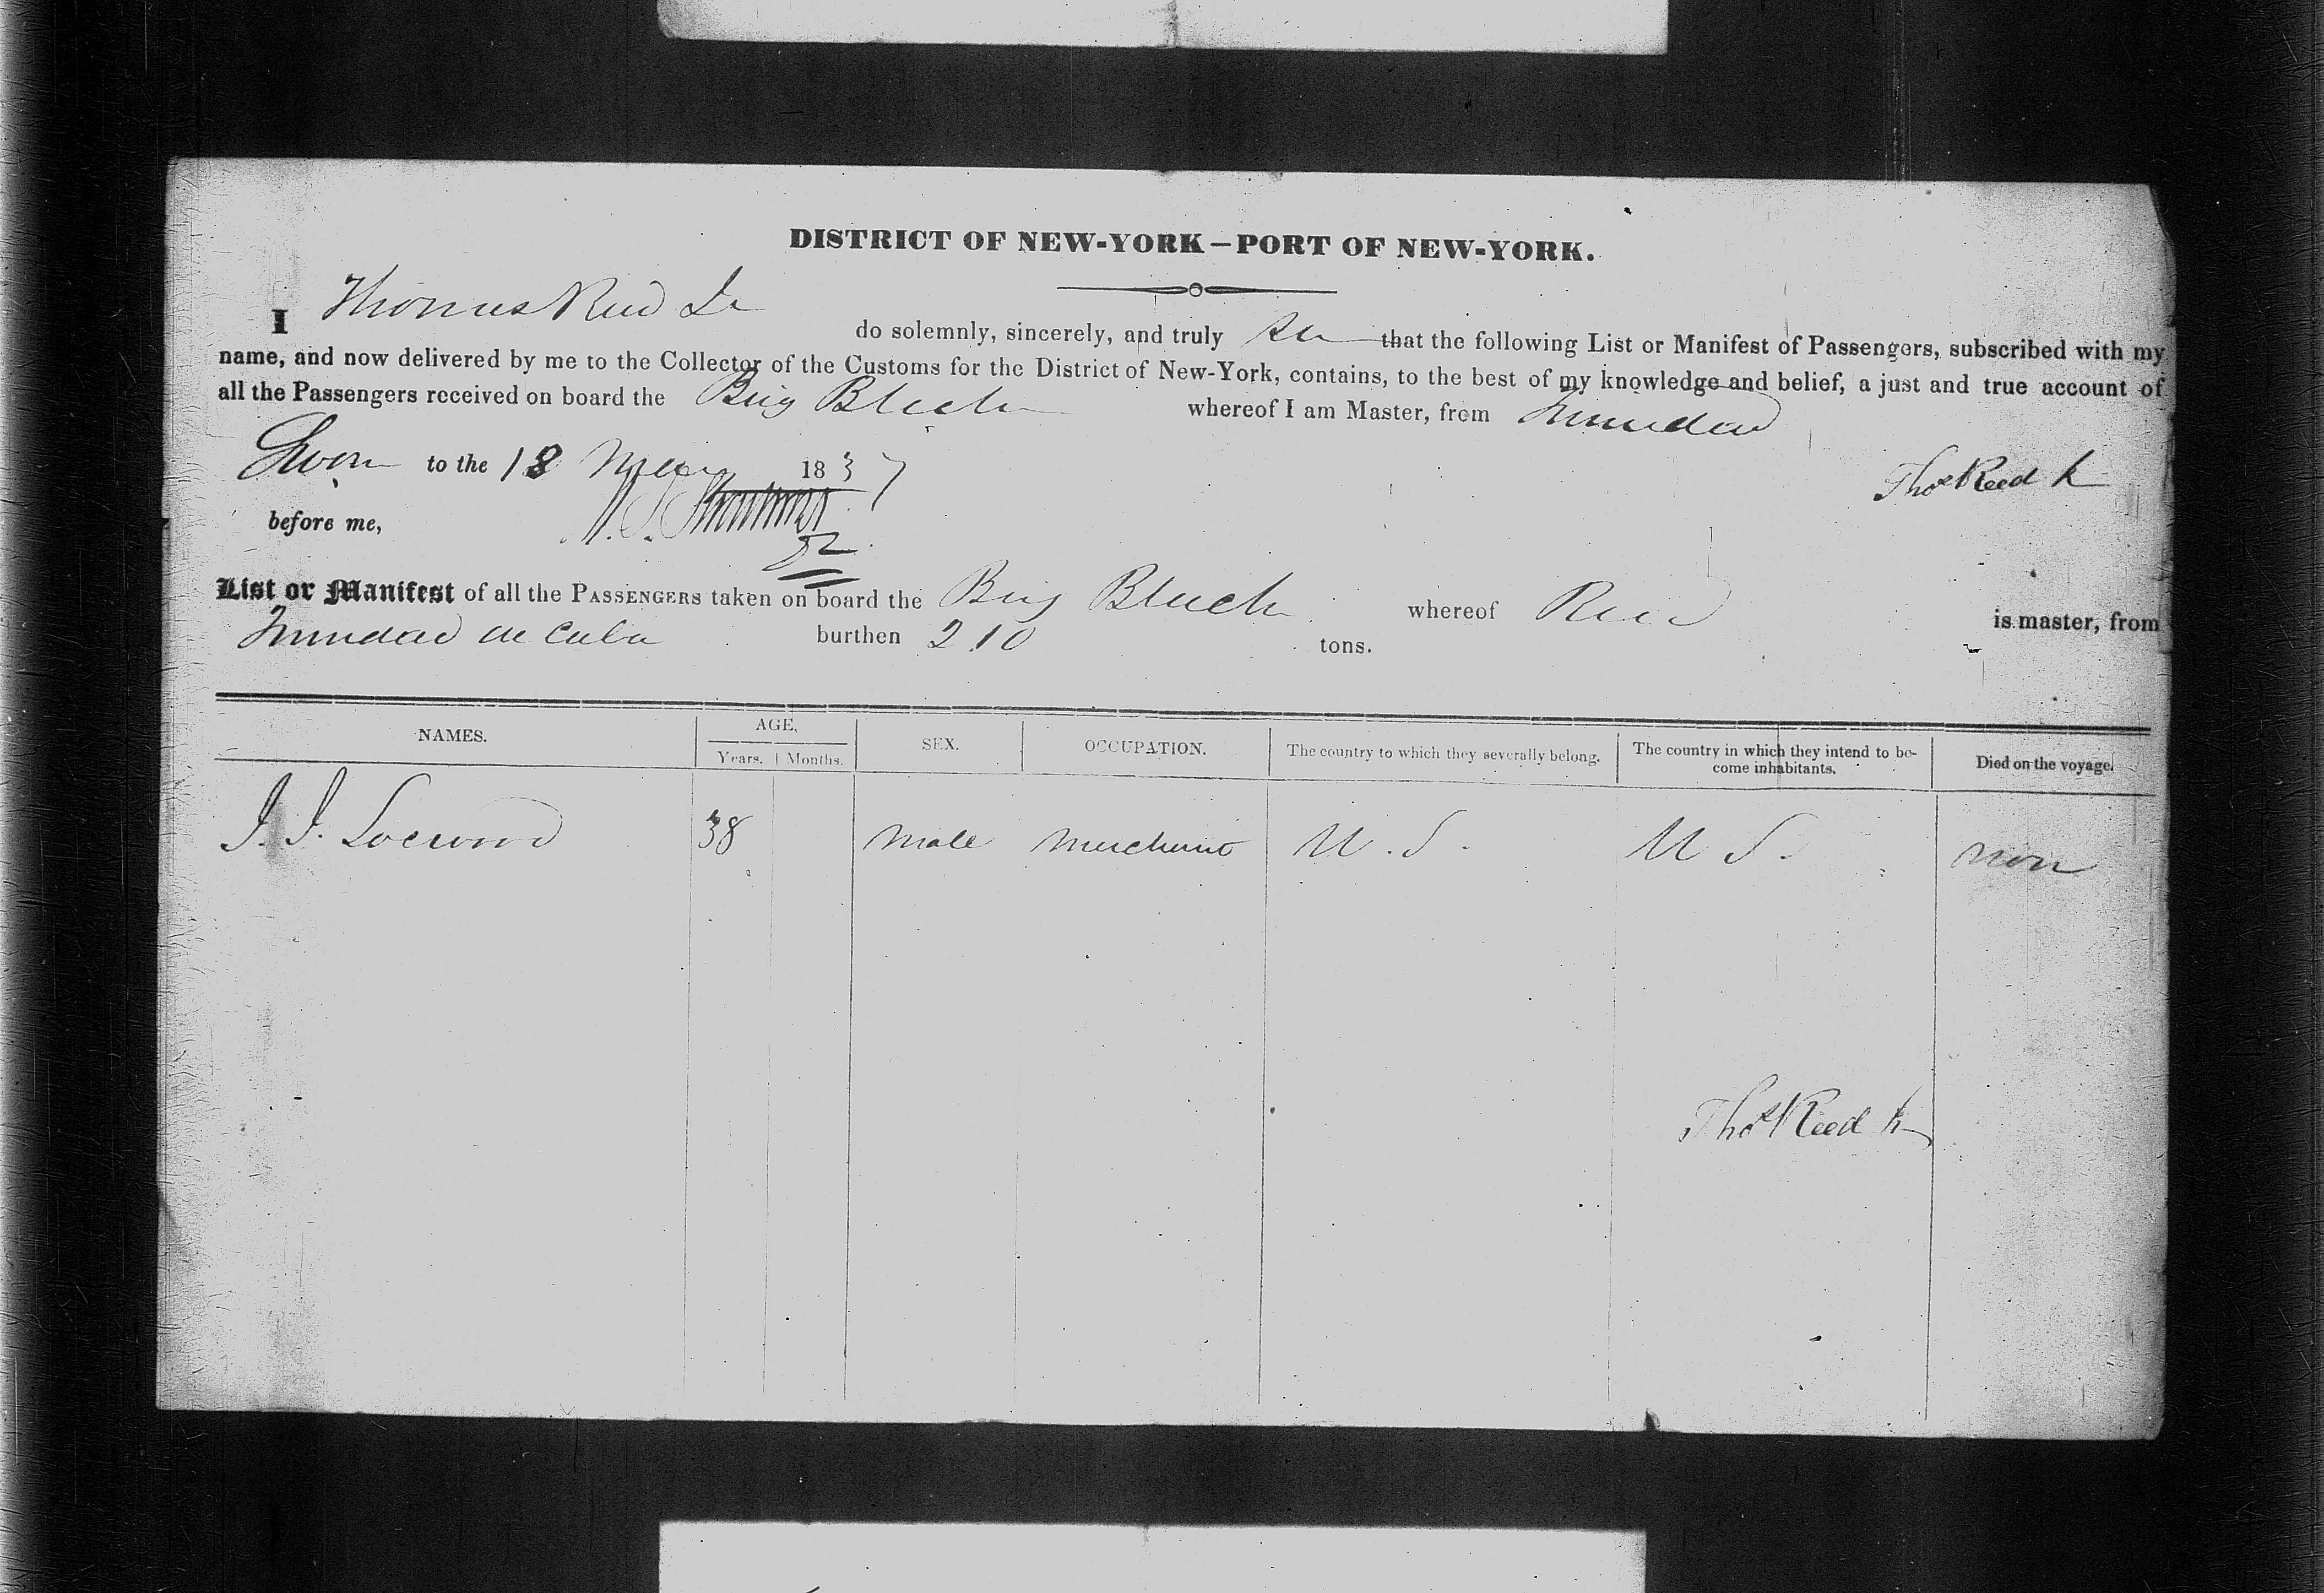 DISTRICT OF NEW-YORK—PORT OF NEW-YORK.
I Thomas Reed Jr do solemnly, sincerely, and truly that the following List or Manifest of Passengers, subscribed with my
name, and now delivered by me to the Collector of the Customs for the District of New-York, contains, to the best of my knowledge and belief, a just and true account of
all the Passengers received on board the Brig whereof I am Master, from Trinidad
Sworn to the 18 May 1837
Thos Reed Jr
before me,
52
List or Manifest of all the PASSENGERS taken on board the Brig whereof Reed is master, from
Trinidad de Cuba burthen 210 tons.
NAMES. AGE, SEX. OCCUPATION. The country to which they severally belong. The country in which they intend to be- Died on the voyage.
Years. Months. come inhabitants.
J. J. 38 male merchant U.S. U S. non
Thos Reed Jr